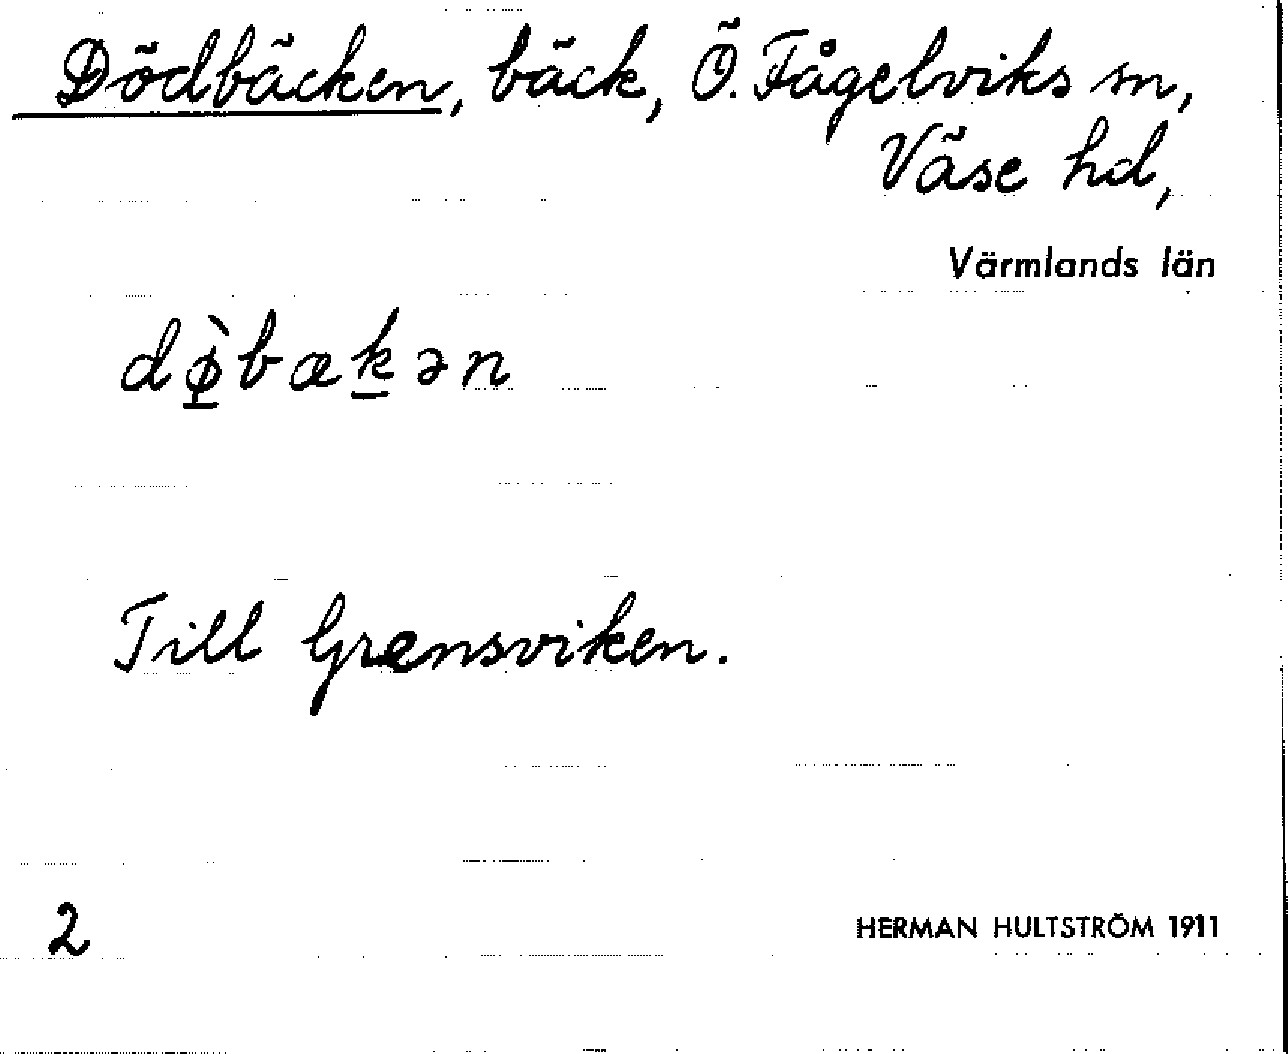 Dödbäcken, bäck, Ö. Fågelviks sn,
Väse hd,
Värmlands län
dø̱̀bæḵən
Till Grensviken.
2
HERMAN HULTSTRÖM 1911